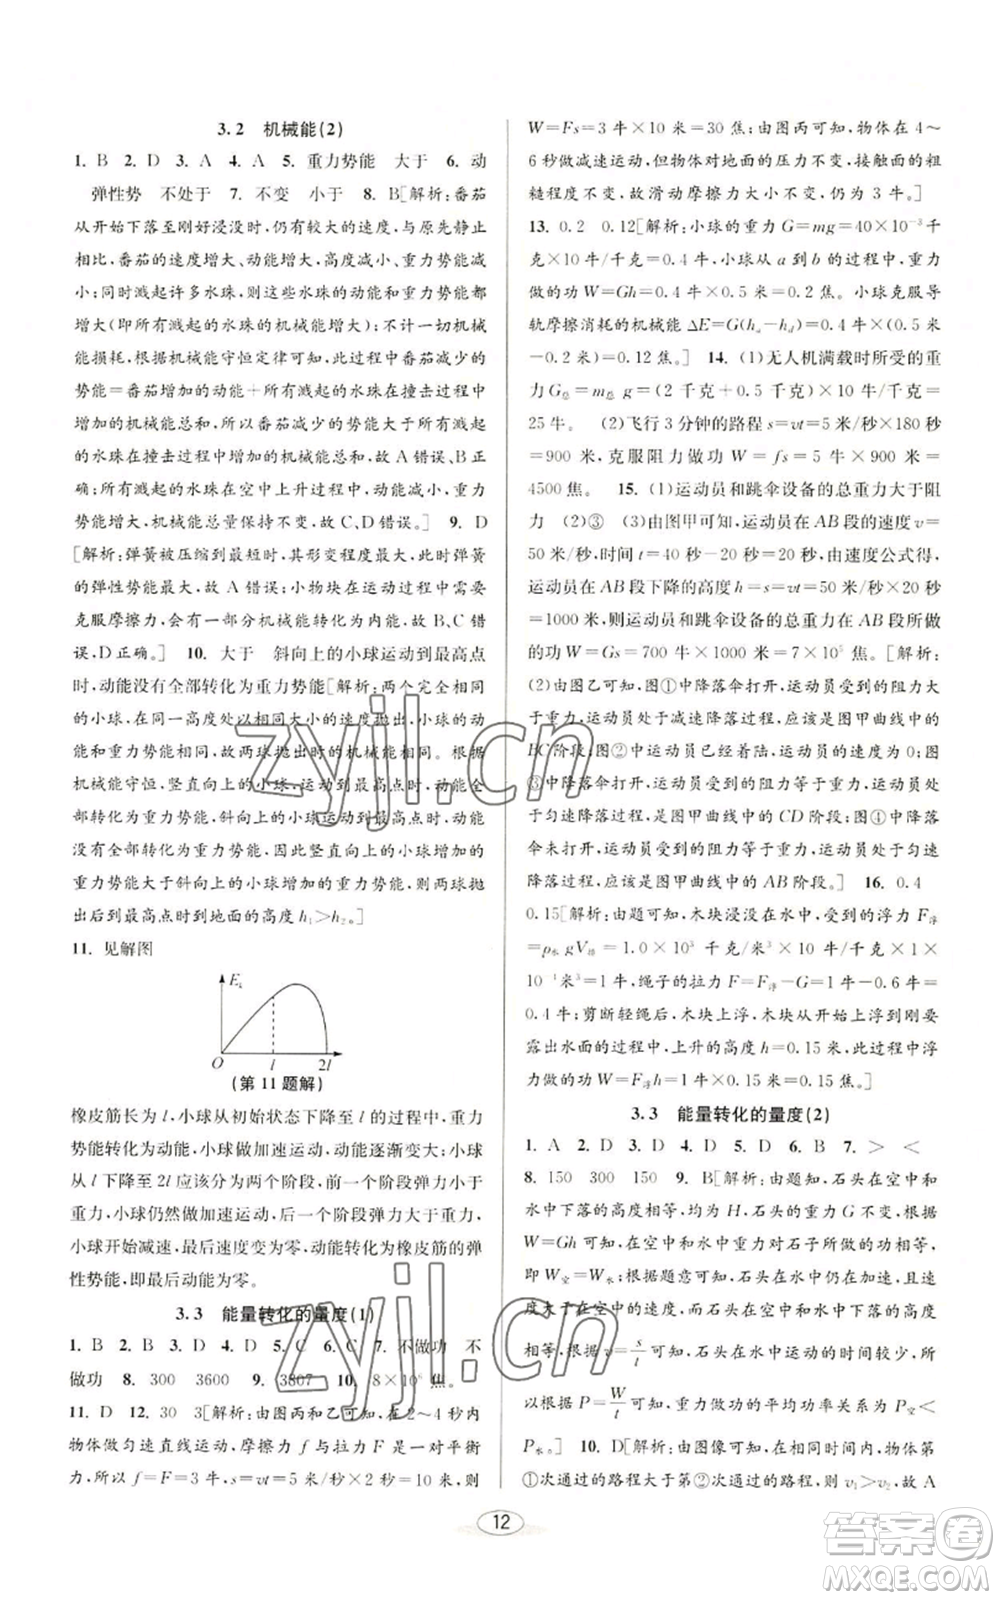 3.2 机械能(2)
1. B 2. D 3. A 4. A 5. 重力势能 大于 6. 动
弹性势 不处于 7. 不变 小于 8. B[解析:番茄
从开始下落至刚好浸没时,仍有较大的速度,与原先静止
相比,番茄的速度增大、动能增大,高度减小、重力势能减
小;同时溅起许多水珠,则这些水珠的动能和重力势能都
增大(即所有溅起的水珠的机械能增大);不计一切机械
能损耗,根据机械能守恒定律可知,此过程中番茄减少的
势能=番茄增加的动能+所有溅起的水珠在撞击过程中
增加的机械能总和,所以番茄减少的势能大于所有溅起
的水珠在撞击过程中增加的机械能总和,故 A 错误,B 正
确;所有溅起的水珠在空中上升过程中,动能减小,重力
势能增大,机械能总量保持不变,故 C、D 错误。] 9. D
[解析:弹簧被压缩到最短时,其形变程度最大,此时弹簧
的弹性势能最大,故 A 错误;小物块在运动过程中需要
克服摩擦力,会有一部分机械能转化为内能,故 B、C 错
误,D 正确。] 10. 大于 斜向上的小球运动到最高点
时,动能没有全部转化为重力势能[解析:两个完全相同
的小球,在同一高度处以相同大小的速度抛出,小球的动
能和重力势能相同,故两球抛出时的机械能相同。根据
机械能守恒,竖直向上的小球运动到最高点时,动能全
部转化为重力势能,斜向上的小球运动到最高点时,动能
没有全部转化为重力势能,因此竖直向上的小球增加的
重力势能大于斜向上的小球增加的重力势能,则两球抛
出后到最高点时到地面的高度 h₁>h₂。]
11. 见解图
Eₖ
O l 2l
(第 11 题解)
橡皮筋长为 l,小球从初始状态下降至 l 的过程中,重力
势能转化为动能,小球做加速运动,动能逐渐变大;小球
从 l 下降至 2l 应该分为两个阶段,前一个阶段弹力小于
重力,小球仍然做加速运动,后一个阶段弹力大于重力,
小球开始减速,最后速度变为零,动能转化为橡皮筋的弹
性势能,即最后动能为零。
3.3 能量转化的量度(1)
1. B 2. B 3. D 4. D 5. C 6. C 7. 不做功 不
做功 8. 300 3600 9. 3807 10. 8×10⁶ 焦。
11. D 12. 30 3[解析:由图丙和乙可知,在 2~4 秒内
物体做匀速直线运动,摩擦力 f 与拉力 F 是一对平衡
力,所以 f=F=3 牛,s=vt=5 米/秒×2 秒=10 米,则
W=Fs=3 牛×10 米=30 焦;由图丙可知,物体在 4~
6 秒做减速运动,但物体对地面的压力不变,接触面的粗
糙程度不变,故滑动摩擦力大小不变,仍为 3 牛。]
13. 0.2 0.12[解析:小球的重力 G=mg=40×10⁻³千
克×10 牛/千克=0.4 牛,小球从 a 到 b 的过程中,重力
做的功 W=Gh=0.4 牛×0.5 米=0.2 焦。小球克服导
轨摩擦消耗的机械能 ΔE=G(hₐ-h_d)=0.4 牛×(0.5
米-0.2 米)=0.12 焦。] 14. (1)无人机满载时所受的重
力 G总=m总 g=(2 千克+0.5 千克)×10 牛/千克=
25 牛。 (2)飞行 3 分钟的路程 s=vt=5 米/秒×180 秒
=900 米,克服阻力做功 W=fs=5 牛×900 米=
4500 焦。 15. (1)运动员和跳伞设备的总重力大于阻
力 (2)③ (3)由图甲可知,运动员在 AB 段的速度 v=
50 米/秒,时间 t=40 秒-20 秒=20 秒,由速度公式得,
运动员在 AB 段下降的高度 h=s=vt=50 米/秒×20 秒
=1000 米,则运动员和跳伞设备的总重力在 AB 段所做
的功 W=Gs=700 牛×1000 米=7×10⁵ 焦。[解析:
(2)由图乙可知,图①中降落伞打开,运动员的阻力大于
重力,运动员处于减速降落过程,应该是图甲曲线中的
BC 阶段;图②中运动员已经着陆,运动员的速度为 0;图
③中降落伞打开,运动员的阻力等于重力,运动员处
于匀速降落过程,是图甲曲线中的 CD 阶段;图④中降落
伞未打开,运动员的阻力等于重力,运动员处于匀速
降落阶段,应该是图甲曲线中的 AB 阶段。] 16. 0.4
0.15[解析:由图可知,木块浸没在水中,受到的浮力 F浮
=ρ水 gV排=1.0×10³ 千克/米³×10 牛/千克×1×
10⁻⁴米³=1 牛,绳子的拉力 F=F浮-G=1 牛-0.6 牛=
0.4 牛;剪断轻绳后,木块上浮,木块从开始上浮到刚要
露出水面的过程中,上升的高度为 0.15 米,此过程中浮
力做的功 W=F浮h=1 牛×0.15 米=0.15 焦。]
3.3 能量转化的量度(2)
1. A 2. D 3. D 4. D 5. D 6. B 7. > <
8. 150 300 150 9. B[解析:由题知,石头在空中和
水中下落的高度相等,均为 H,石头的重力 G 不变,根据
W=Gh 可知,在空中和水中重力对石子所做的功相等,
即 W空=W水;根据题意可知,石头在水中仍在加速,且速
度大于在空中的速度,而石头在空中和水中下落的高度
相等,根据 v=s/t 可知,石头在水中运动的时间较少,所
以根据 P=W/t 可知,重力做功的平均功率关系为 P空<
P水。] 10. D[解析:由图像可知,在相同时间内,物体第
①次通过的路程大于第②次通过的路程,则 v₁>v₂,故 A
12
zyjl.cn
zyjl.cn
答案圈
MXQE.COM